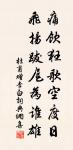 痛飲狂歌空度日
飛揚跋扈為誰雄
杜甫贈李白詞典網